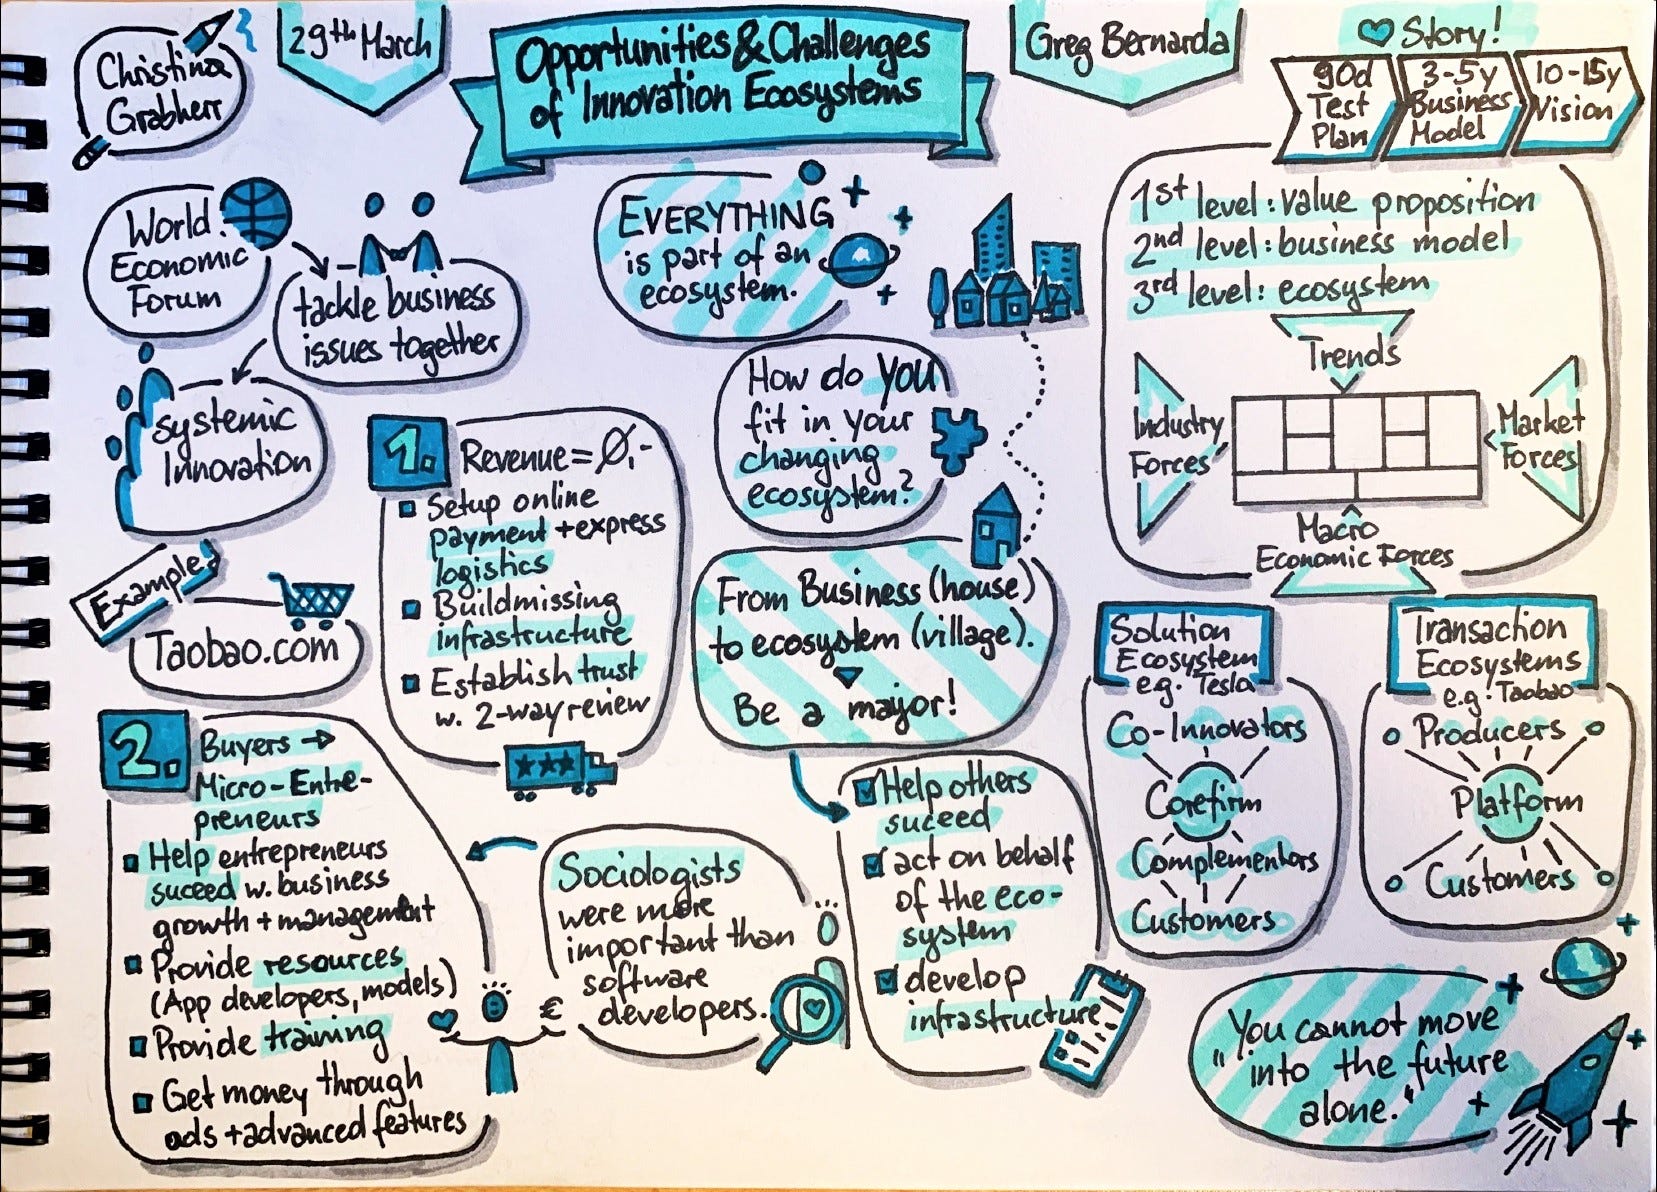 Christina
Grabherr
29th March
Opportunities & Challenges
of Innovation Ecosystems
Greg Bernarda
Story!
90d
Test
Plan
3-5y
Business
Model
10-15y
Vision
World
Economic
Forum
tackle business
issues together
systemic
Innovation
Example
Taobao.com
1.
Revenue = 0,-
Setup online
payment + express
logistics
Build missing
infrastructure
Establish trust
w. 2-way review
2.
Buyers →
Micro-Entre-
preneurs
Help entrepreneurs
suceed w. business
growth + management
Provide resources
(App developers, models)
Provide training
Get money through
ads + advanced features
€
Sociologists
were more
important than
software
developers.
EVERYTHING
is part of an
ecosystem.
How do YOU
fit in your
changing
ecosystem?
From Business (house)
to ecosystem (village).
Be a major!
Help others
suceed
act on behalf
of the eco-
system
develop
infrastructure
1st level: value proposition
2nd level: business model
3rd level: ecosystem
Trends
Industry
Forces
Market
Forces
Macro
Economic Forces
Solution
Ecosystem
e.g. Tesla
Co-Innovators
Corefirm
Complementors
Customers
Transaction
Ecosystems
e.g. Taobao
Producers
Platform
Customers
"You cannot move
into the future
alone."